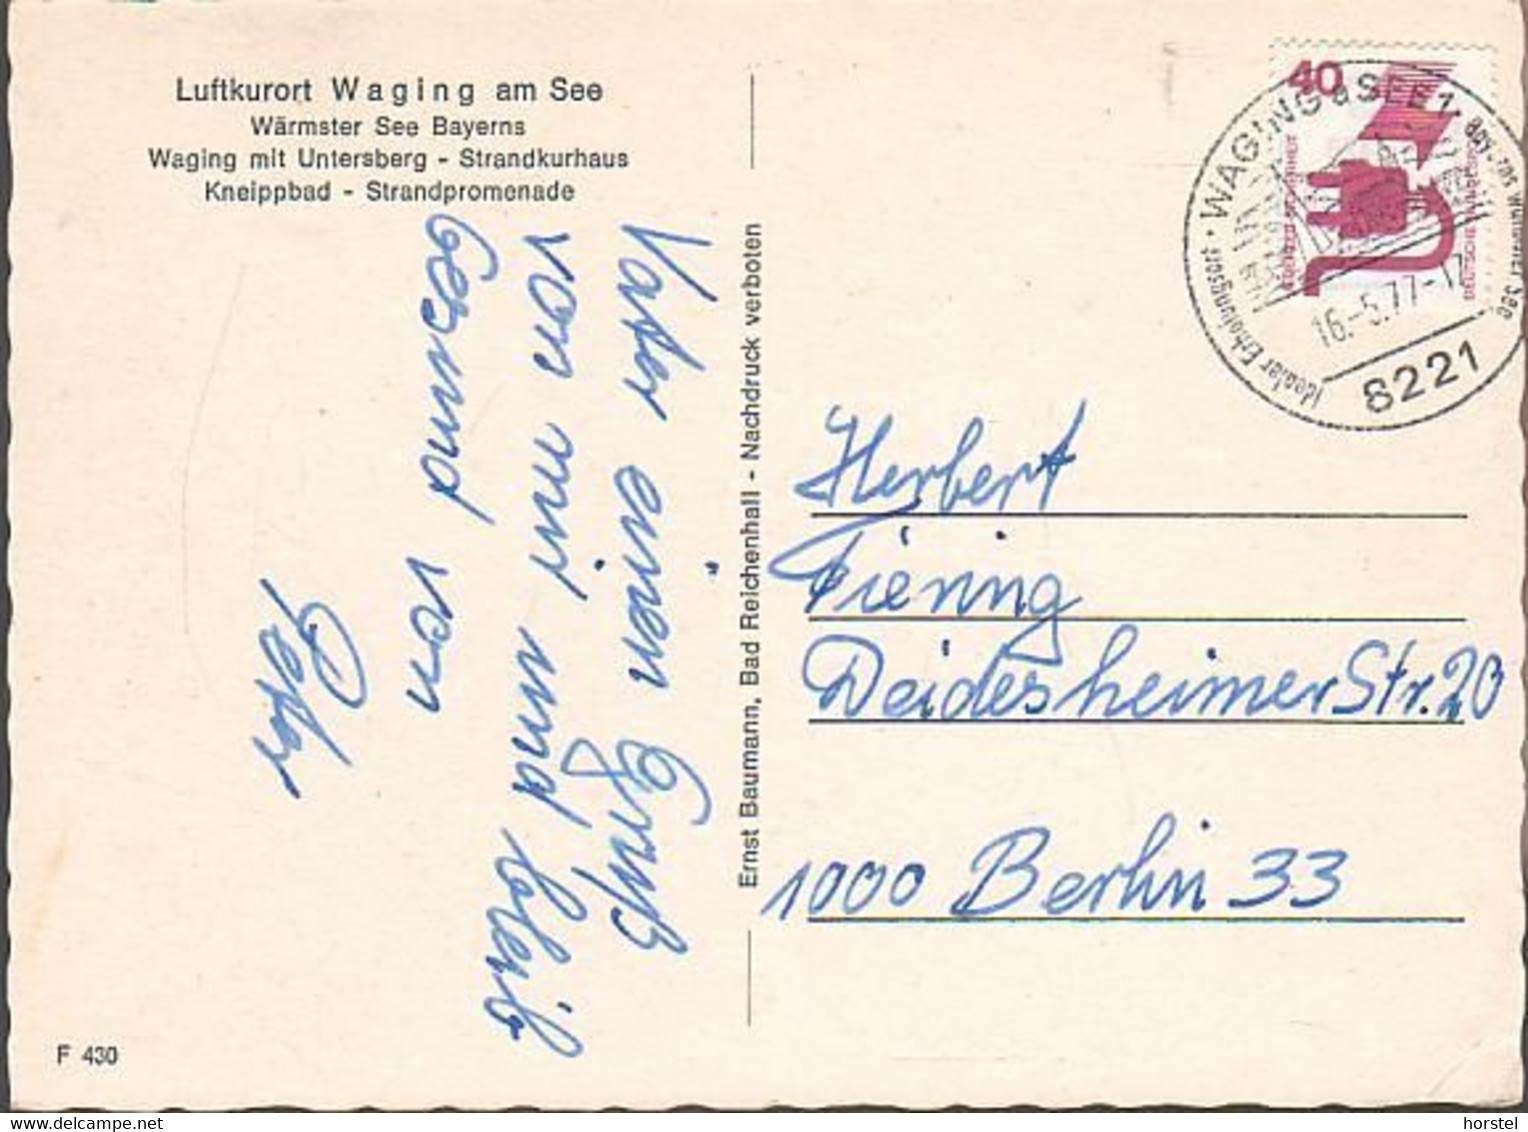 Luftkurort Waging am See
Wärmster See Bayerns
Waging mit Untersberg - Strandkurhaus
Kneippbad - Strandpromenade
Vater einen Gruß
von mir und bleib
Gesund
von
Peter
Ernst Baumann, Bad Reichenhall - Nachdruck verboten
40
DEUTSCHE BUNDESPOST
WAGING a SEE 1
Idealer Erholungsort
16.-5.77-17
8221
Herbert
Piening
Deidesheimer Str. 20
1000 Berlin 33
F 430
delcampe.net
horstel